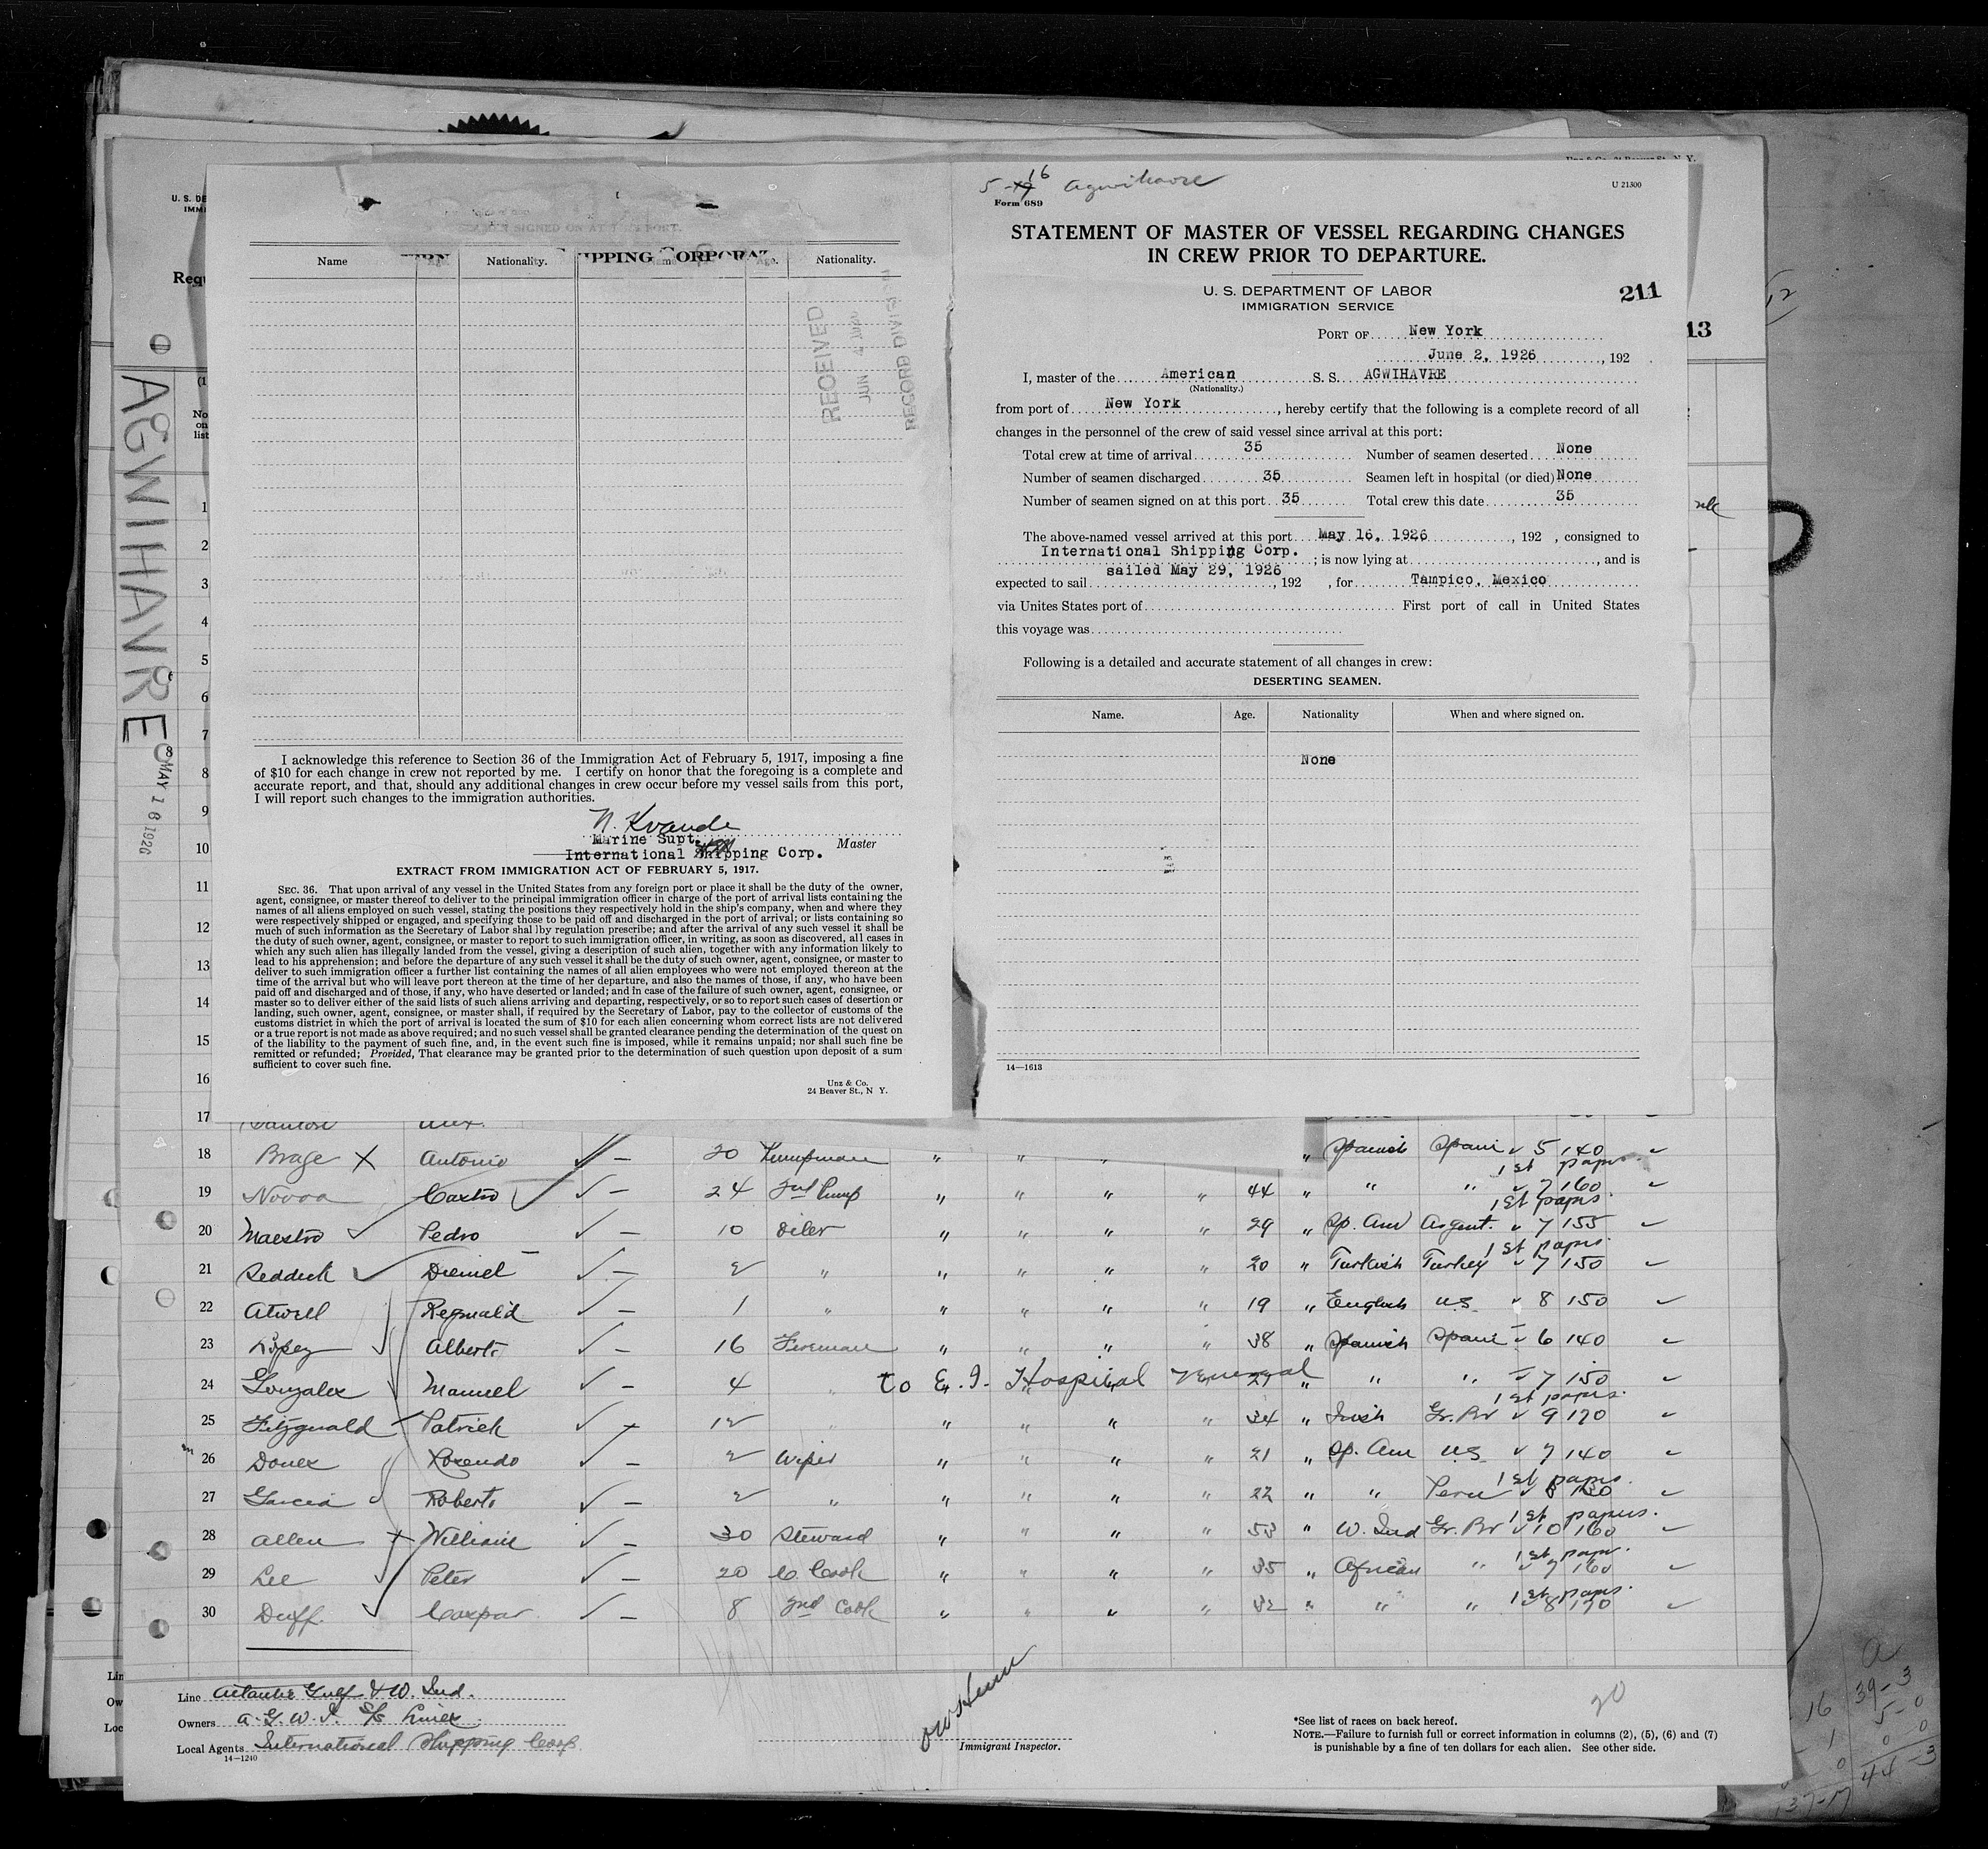 U. S. DE
IMMI
Requ
AGWIHAVRE
MAY 16 1926
SEAMEN SIGNED ON AT THIS PORT.
SHIPPING CORPORAT
Name Age. Nationality. Name Age. Nationality.
RECEIVED
JUN 4 1926
RECORD DIVISION
I acknowledge this reference to Section 36 of the Immigration Act of February 5, 1917, imposing a fine
of $10 for each change in crew not reported by me. I certify on honor that the foregoing is a complete and
accurate report, and that, should any additional changes in crew occur before my vessel sails from this port,
I will report such changes to the immigration authorities.
N. Kvande
Marine Supt.
International Shipping Corp. Master
EXTRACT FROM IMMIGRATION ACT OF FEBRUARY 5, 1917.
SEC. 36. That upon arrival of any vessel in the United States from any foreign port or place it shall be the duty of the owner,
agent, consignee, or master thereof to deliver to the principal immigration officer in charge of the port of arrival lists containing the
names of all aliens employed on such vessel, stating the positions they respectively hold in the ship's company, when and where they
were respectively shipped or engaged, and specifying those to be paid off and discharged in the port of arrival; or lists containing so
much of such information as the Secretary of Labor shal lby regulation prescribe; and after the arrival of any such vessel it shall be
the duty of such owner, agent, consignee, or master to report to such immigration officer, in writing, as soon as discovered, all cases in
which any such alien has illegally landed from the vessel, giving a description of such alien, together with any information likely to
lead to his apprehension; and before the departure of any such vessel it shall be the duty of such owner, agent, consignee, or master to
deliver to such immigration officer a further list containing the names of all alien employees who were not employed thereon at the
time of the arrival but who will leave port thereon at the time of her departure, and also the names of those, if any, who have been
paid off and discharged and of those, if any, who have deserted or landed; and in case of the failure of such owner, agent, consignee, or
master so to deliver either of the said lists of such aliens arriving and departing, respectively, or so to report such cases of desertion or
landing, such owner, agent, consignee, or master shall, if required by the Secretary of Labor, pay to the collector of customs of the
customs district in which the port of arrival is located the sum of $10 for each alien concerning whom correct lists are not delivered
or a true report is not made as above required; and no such vessel shall be granted clearance pending the determination of the quest on
of the liability to the payment of such fine, and, in the event such fine is imposed, while it remains unpaid; nor shall such fine be
remitted or refunded; Provided, That clearance may be granted prior to the determination of such question upon deposit of a sum
sufficient to cover such fine.
Unz & Co.
24 Beaver St., N Y.
5-16 Agwihavre
Form 689
U 21300
STATEMENT OF MASTER OF VESSEL REGARDING CHANGES
IN CREW PRIOR TO DEPARTURE.
U. S. DEPARTMENT OF LABOR
IMMIGRATION SERVICE
211
13
PORT OF New York
June 2, 1926, 192
I, master of the American S. S. AGWIHAVRE
(Nationality.)
from port of New York, hereby certify that the following is a complete record of all
changes in the personnel of the crew of said vessel since arrival at this port:
Total crew at time of arrival 35 Number of seamen deserted None
Number of seamen discharged 35 Seamen left in hospital (or died) None
Number of seamen signed on at this port 35 Total crew this date 35
The above-named vessel arrived at this port May 16, 1926, 192 , consigned to
International Shipping Corp. ; is now lying at , and is
expected to sail sailed May 29, 1926, 192 , for Tampico, Mexico
via Unites States port of First port of call in United States
this voyage was
Following is a detailed and accurate statement of all changes in crew:
DESERTING SEAMEN.
Name. Age. Nationality When and where signed on.
None
14—1613
1
2
3
4
5
6
7
8
9
10
11
12
13
14
15
16
17
18 Brage X Antonio ✓ — 20 Pumpman " " " " Spanish Spain ✓ 5 140 ✓
1st papers
19 Novoa Castro ✓ — 24 2nd Pump " " " " 44 " " " ✓ 7 160 ✓
1st papers.
20 Maestro ✓ Pedro ✓ — 10 Oiler " " " " 29 " Sp. Am Argent. ✓ 7 155 ✓
1st papers.
21 Seddick ✓ Diemel ✓ — 2 " " " " " 20 " Turkish Turkey ✓ 7 150 ✓
22 Atwell Reginald ✓ — 1 " " " " " 19 " English U.S. ✓ 8 150 ✓
23 Lopez Alberto ✓ — 16 Fireman " " " " 38 " Spanish Spain ✓ 6 140 ✓
24 Gonzalez Manuel ✓ — 4 " to E. I. Hospital Venereal 27 " " " ✓ 7 150 ✓
1st papers.
25 Fitzgerald Patrick ✓ — 12 " " " " " 34 " Irish Gr. Br ✓ 9 170 ✓
26 Dones Rosendo ✓ — 2 Wiper " " " " 21 " Sp. Am U.S. ✓ 7 140 ✓
1st papers.
27 Garcia Roberto ✓ — 2 " " " " " 22 " " Peru ✓ 8 130 ✓
1st papers.
28 Allen William ✓ — 30 Steward " " " " 53 " W. Ind Gr. Br ✓ 10 160 ✓
1st paper.
29 Lee Peter ✓ — 20 C Cook " " " " 35 " African " ✓ 7 160 ✓
1st papers.
30 Duff. ✓ Caspar ✓ — 8 2nd Cook " " " " 32 " " " ✓ 8 170 ✓
Line Atlantic Gulf & W. Ind.
Owners A. G. W. I. S/S Lines
Local Agents International Shipping Corp.
14—1240
Immigrant Inspector.
20
*See list of races on back hereof.
NOTE.—Failure to furnish full or correct information in columns (2), (5), (6) and (7)
is punishable by a fine of ten dollars for each alien. See other side.
16 39-3
1 5-0
0 0
137-17 44-3